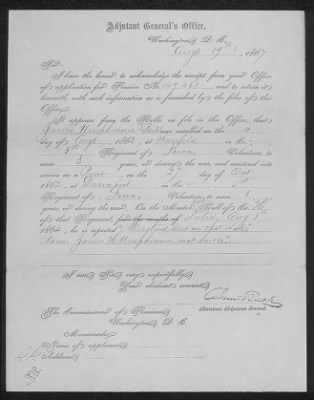 Adjutant General's Office,
Washington, D. C.,
Aug 19th, 1867
Sir:
I have the honor to acknowledge the receipt from your Office
of application for Pension No. 149.461, and to return it
herewith, with such information as is furnished by the files of this
Office.
It appears from the Rolls on file in this Office, that
was enrolled on the 11
day of Aug, 1862, at in
Regiment of Iowa Volunteers, to
serve years, or during the war, and mustered into
service as a on the 27 day of
1862, at Davenport, in the
Regiment of Iowa Volunteers, to serve
years, or during the war. On the Muster Roll of
of that Regiment, dated Aug
1865, he is reported Mustered out on that date
name James H Umphenour not borne
I am, Sir, very respectfully,
Your obedient servant,
Assistant Adjutant General.
The Commissioner of Pensions,
Washington, D. C.
Memoranda:
Name of applicant
Address